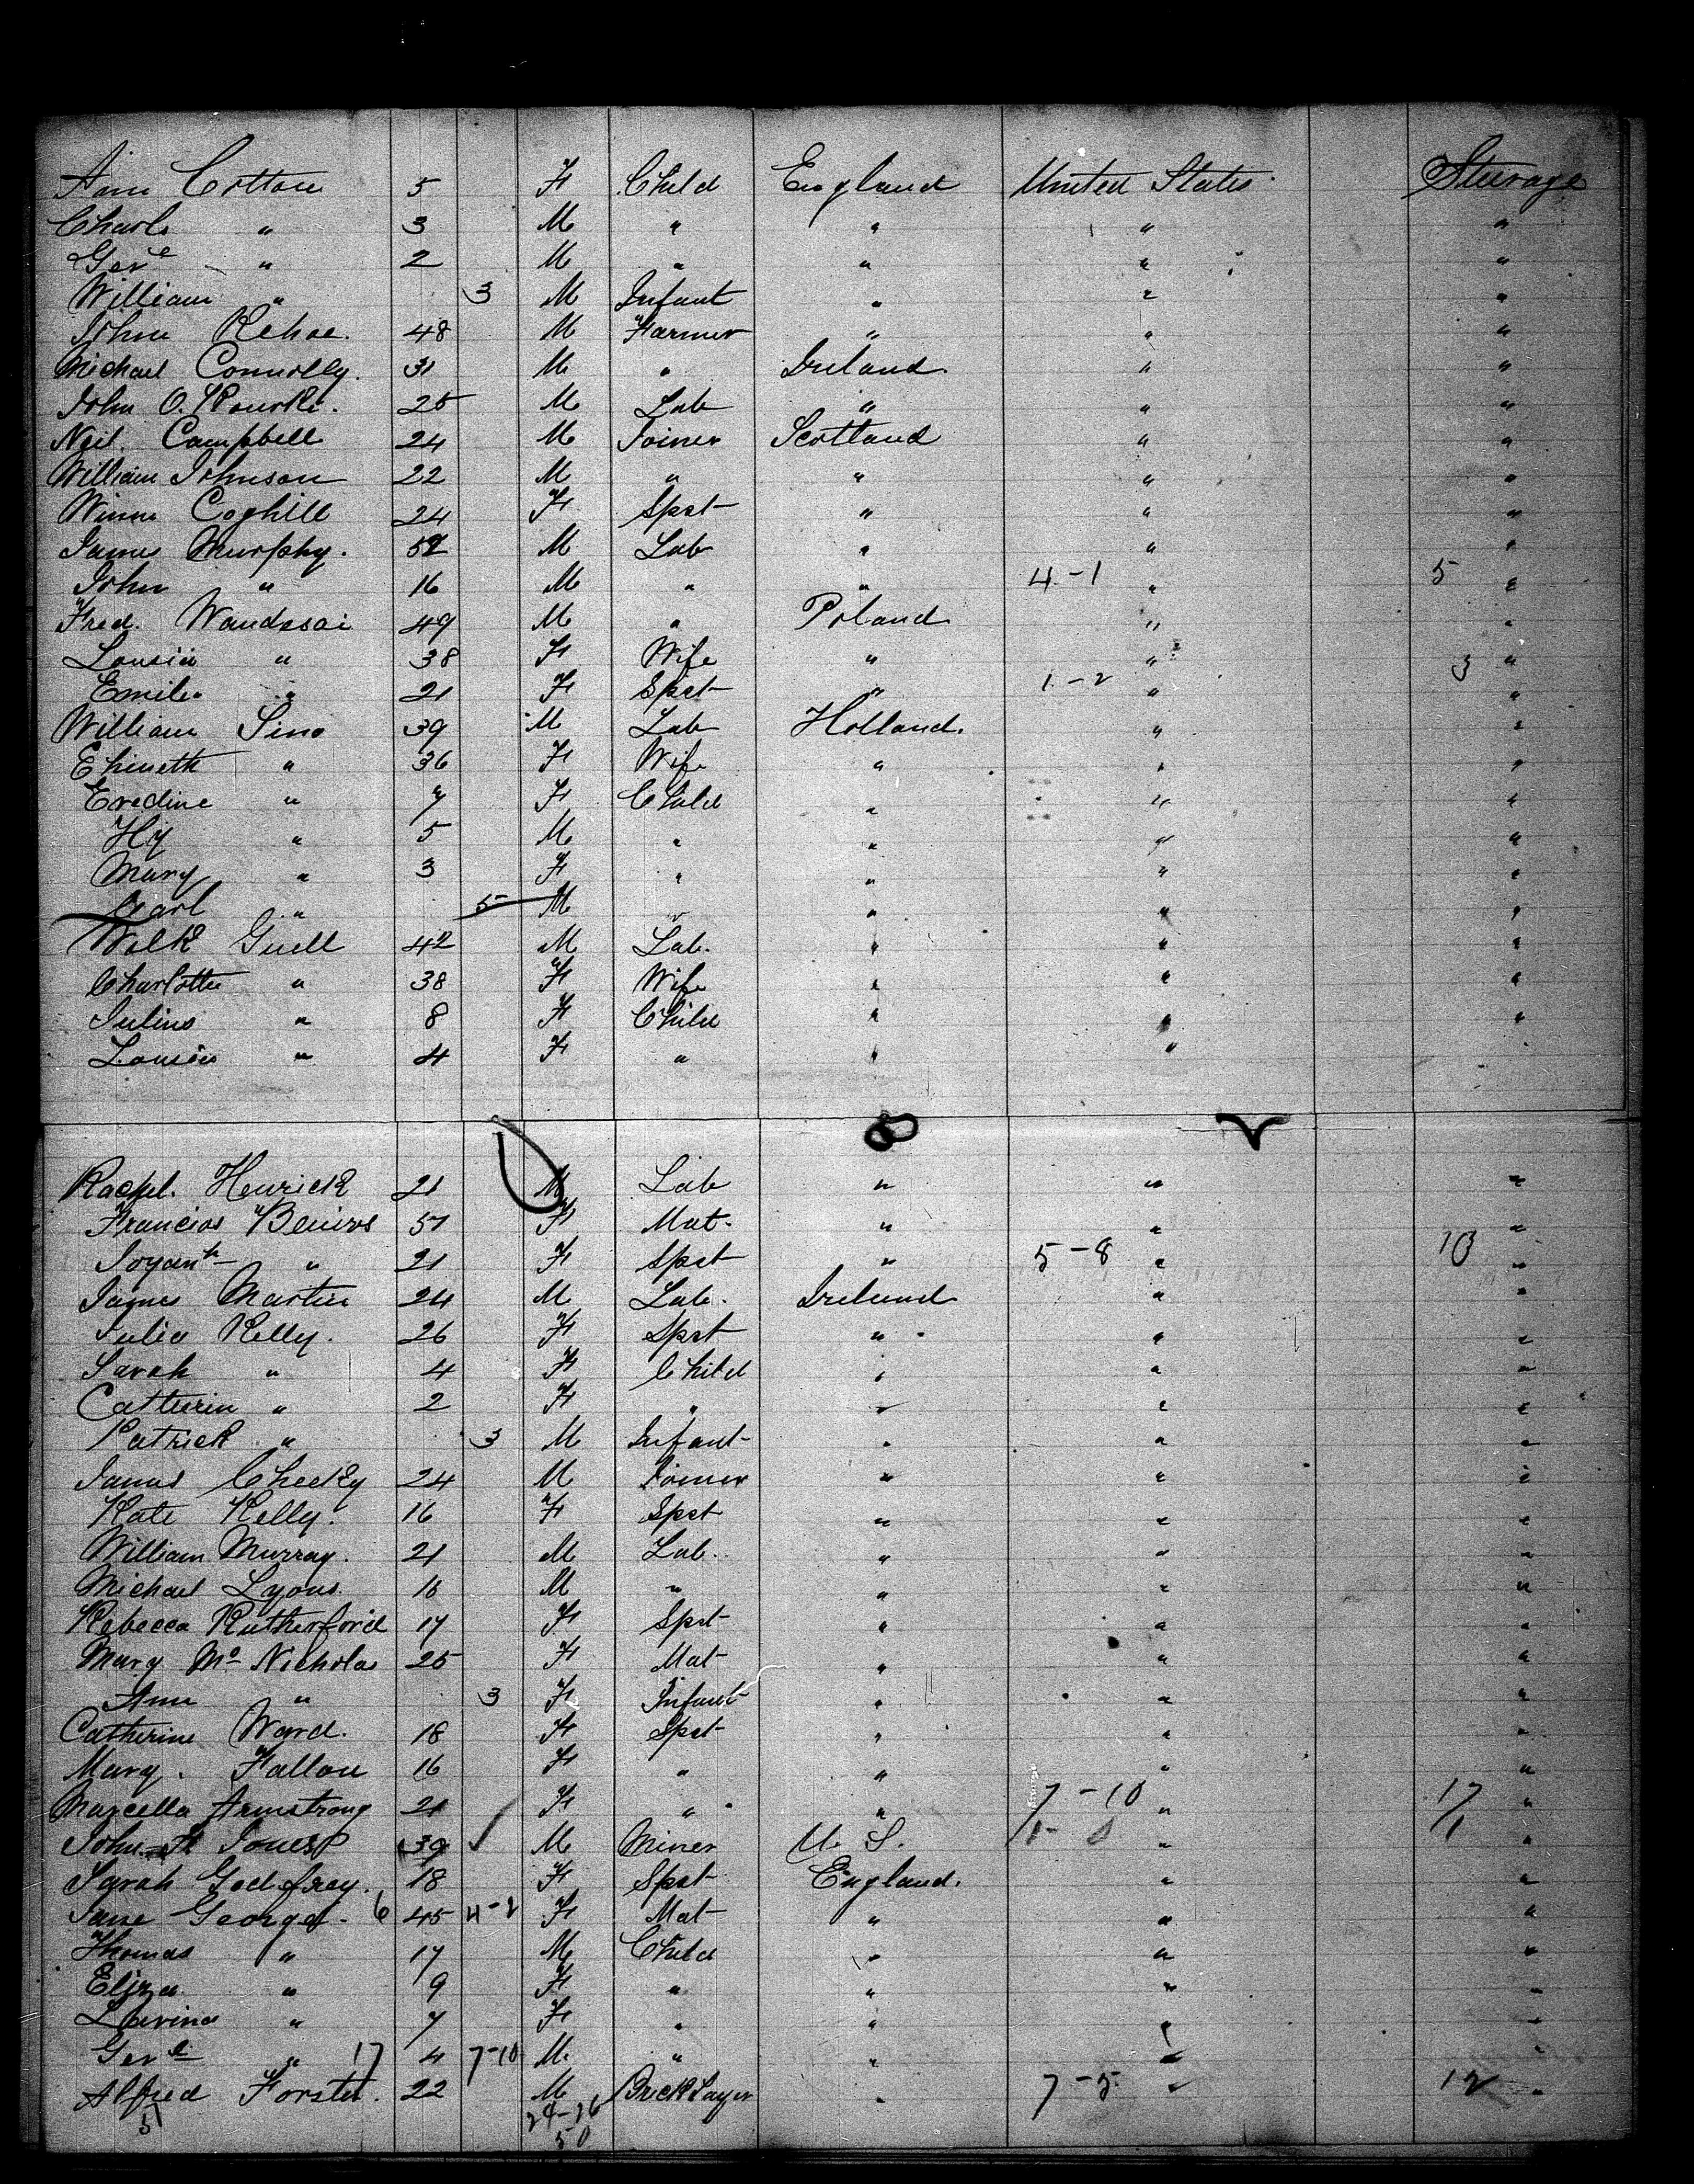 Ann Cotton 5 F Child England United States Steerage
Charls " 3 M " " " "
Geo " 2 M " " " "
William " 3 M Infant " " "
John Kehoe. 48 M Farmer " " "
Michael Connolly. 31 M " Ireland. " "
John O. Rourke. 25 M Lab " " "
Neil Campbell 24 M Joiner Scotland " "
William Johnson 22 M " " " "
Winne Coghill 24 F Spst " " "
James Murphy. 52 M Lab " " "
John " 16 M " " 4-1 " 5 "
Fred. Wandasai 49 M " Poland " "
Lousia " 38 F Wife " " 3 "
Emilie " 21 F Spst " 1-2 " "
William Sino 39 M Lab Holland. " "
Ehineth " 36 F Wife " " "
Evedine " 7 F Child " " "
Hy " 5 M " " " "
Mary " 3 F " " " "
Carl " 5 M " " " "
Wolk Guell 42 M Lab. " " "
Charlotte " 38 F Wife " " "
Julius " 8 F Child " " "
Lousia " 4 F " " "
8
Rachel. Henrick 21 M Lab " " "
Francios Benivs 51 F Mat. " " "
" 21 F Spst " 5-8 " 13 "
James Martin 24 M Lab. Ireland " "
Julia Kelly. 26 F Spst " " "
Sarah " 4 F Child " " "
Catherin " 2 F " " " "
Patrick " 3 M Infant " " "
James Cheeky 24 M Joiner " " "
Kate Kelly. 16 F Spst " " "
William Murray. 21 M Lab. " " "
Michael Lyons. 18 M " " " "
Rebecca Rutherford 17 F Spst " " "
Mary Mc Nicholas 25 F Mat " " "
Ann " 3 F Infant " " "
Catherine Ward. 18 F Spst " " "
Mary. Fallon 16 F " " " "
Marcella Armstrong 21 F " " 7-10 " 17 "
John H Jones 39 ✓ M Miner U. S. 1-0 " 1 "
Sarah Godfrey. 18 F Spst England. " "
Jane George. 6 45 4-2 F Mat " " "
Thomas " 17 M Child " " "
Eliza " 9 F " " " "
Lavina " 7 F " " " "
Geo " 17 4 7-10 M " " " "
Alfred Forster. 22 M Brick Layer " 7-5 " 12 "
51 24-26
50